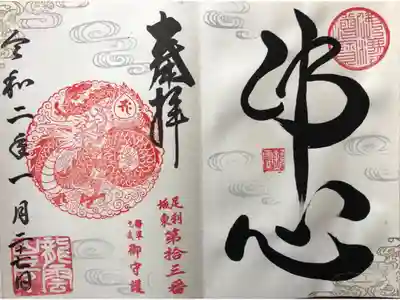 佛心
奉拝
足利
坂東
第拾三番
御守護
令和二年一月二十七日